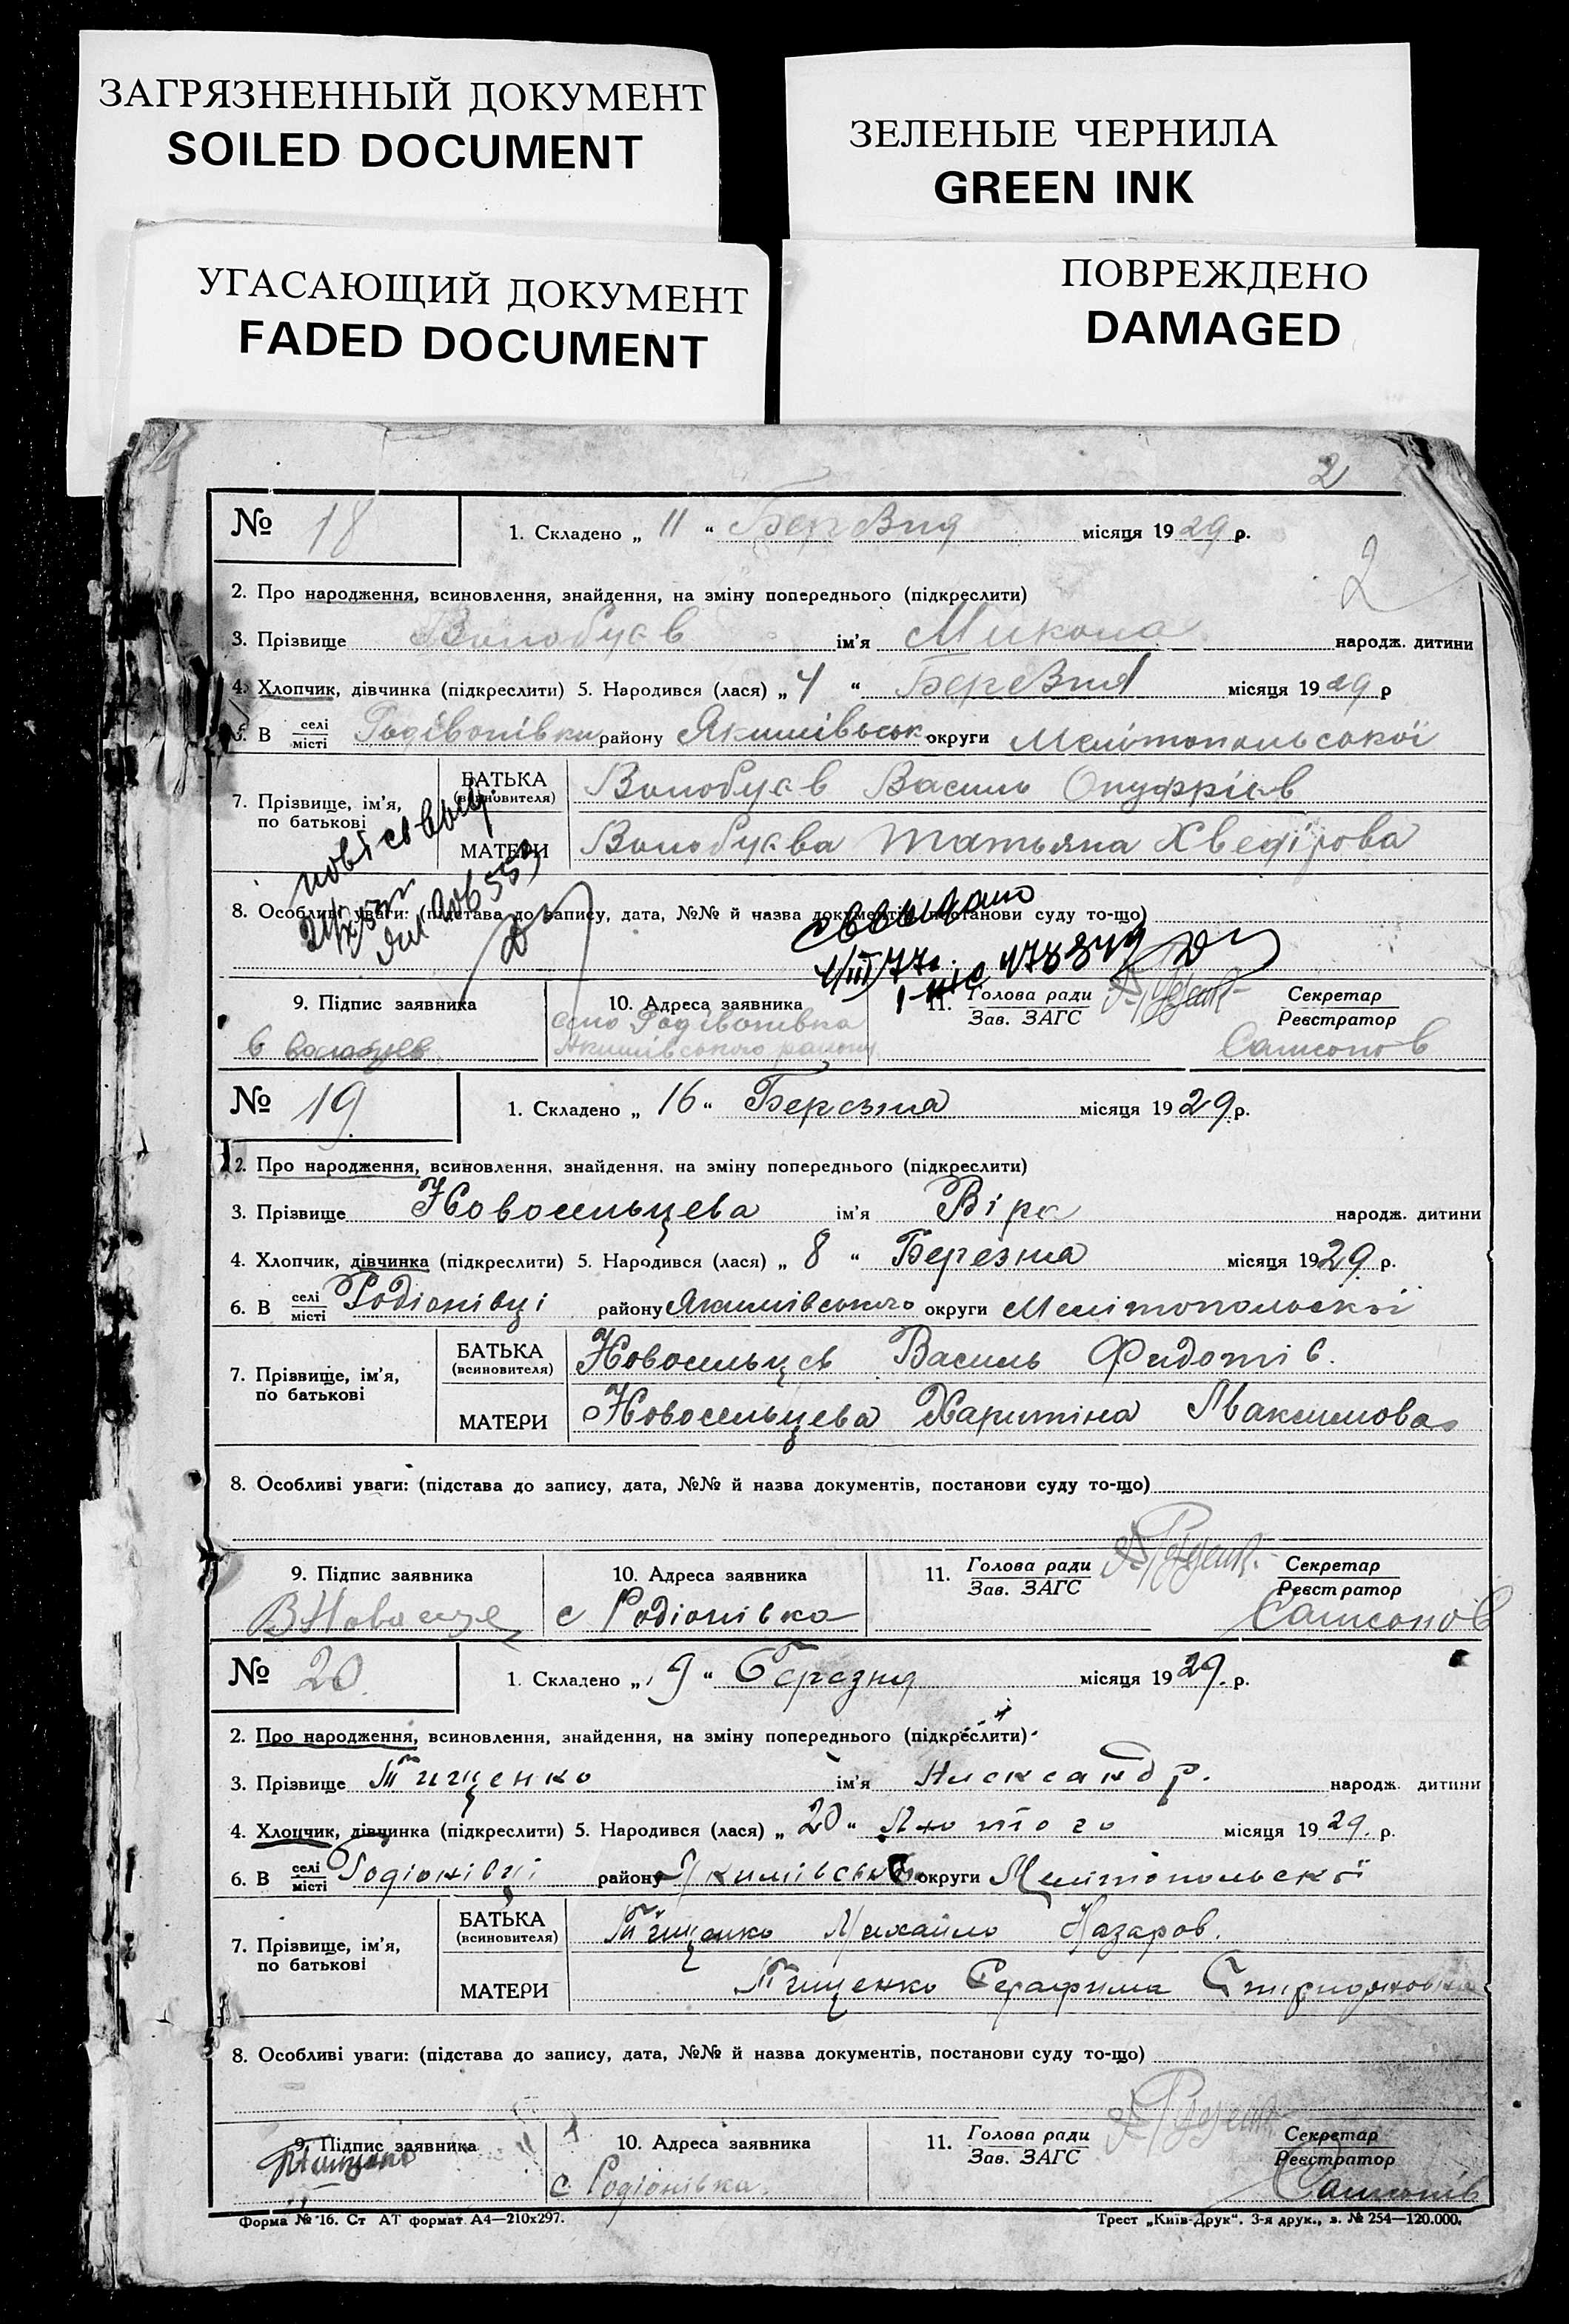 ЗАГРЯЗНЕННЫЙ ДОКУМЕНТ
SOILED DOCUMENT
ЗЕЛЕНЫЕ ЧЕРНИЛА
GREEN INK
УГАСАЮЩИЙ ДОКУМЕНТ
FADED DOCUMENT
ПОВРЕЖДЕНО
DAMAGED
2
№ 18
1. Складено „ 11 “ Березня місяця 1929 р.
2
2. Про народження, всиновлення, знайдення, на зміну попереднього (підкреслити)
3. Прізвище Волобуєв ім'я Микола народж. дитини
4. Хлопчик, дівчинка (підкреслити) 5. Народився (лася) „ 4 “ Березня місяця 1929 р
6. В селі місті Родівонівки району Якимівськ округи Мелітопольської
7. Прізвище, ім'я, по батькові
БАТЬКА (всиновителя) Волобуєв Василь Онуфрієв
МАТЕРИ Волобуєва Татьяна Хведірова
8. Особливі уваги: (підстава до запису, дата, №№ й назва документів, постанови суду то-що)
9. Підпис заявника
10. Адреса заявника
село Родівонівка
Якимівського району
11. Голова ради
Зав. ЗАГС
Секретар
Реєстратор
Самсонов
№ 19
1. Складено „ 16 “ Березня місяця 1929 р.
2. Про народження, всиновлення, знайдення, на зміну попереднього (підкреслити)
3. Прізвище Новосельцева ім'я Віра народж. дитини
4. Хлопчик, дівчинка (підкреслити) 5. Народився (лася) „ 8 “ Березня місяця 1929 р.
6. В селі місті Родіонівці району Якимівського округи Мелітопольскої
7. Прізвище, ім'я, по батькові
БАТЬКА (всиновителя) Новосельцев Василь Федотів.
МАТЕРИ Новосельцева Харитіна Максимова
8. Особливі уваги: (підстава до запису, дата, №№ й назва документів, постанови суду то-що)
9. Підпис заявника
10. Адреса заявника
с Родіонівка
11. Голова ради
Зав. ЗАГС
Секретар
Реєстратор
Самсонов
№ 20
1. Складено „ 19 “ Березня місяця 1929. р.
2. Про народження, всиновлення, знайдення, на зміну попереднього (підкреслити)
3. Прізвище Тищенко ім'я Александр. народж. дитини
4. Хлопчик, дівчинка (підкреслити) 5. Народився (лася) „ 20 “ Лютого місяця 1929. р.
6. В селі місті Родіонівці району округи Мелітопольскої
7. Прізвище, ім'я, по батькові
БАТЬКА (всиновителя) Тищенко Михайло Назаров.
МАТЕРИ Тищенко Серафима Спиридоновна
8. Особливі уваги: (підстава до запису, дата, №№ й назва документів, постанови суду то-що)
9. Підпис заявника
10. Адреса заявника
с. Родіонівка.
11. Голова ради
Зав. ЗАГС
Секретар
Реєстратор
Форма № 16. Ст АТ формат А4—210х297.
Трест „Київ-Друк“. 3-я друк., з. № 254—120.000.